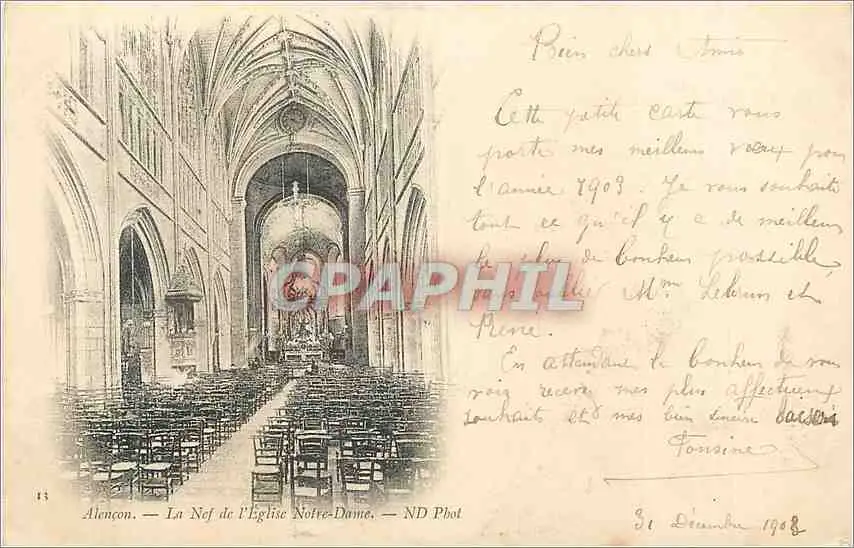 Bien chers Amis
Cette petite carte vous
porte mes meilleurs vœux pour
l'année 1903. Je vous souhaite
tout ce qu'il y a de meilleur
le plus de bonheur possible,
sans oublier Mme Lebrun et
René.
En attendant le bonheur de vous
voir recevez mes plus affectueux
souhaits et mes bien sincères baisers
CPAPHIL
13
Alençon. — La Nef de l'Eglise Notre-Dame. — ND Phot
31 Décembre 1902